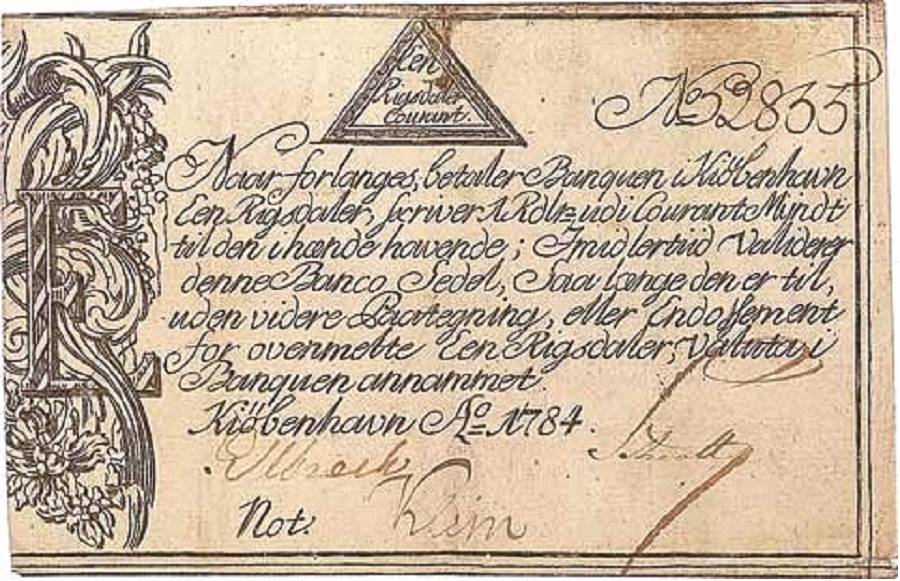 Een
Rigsdaler
Courant.
No 52855
Naar forlanges, betaler Banquen i Kiöbenhavn
Een Rigsdaler, skriver 1 Rdlr udi Courant Myndt
til den ihænde havende; Imidlertiid validerer
denne Banco Sedel, Saa længe den er til,
uden videre Paategning, eller Endossement
for ovenmelte Een Rigsdaler, Valuta i
Banquen annammet.
Kiöbenhavn Ao 1784.
Not: